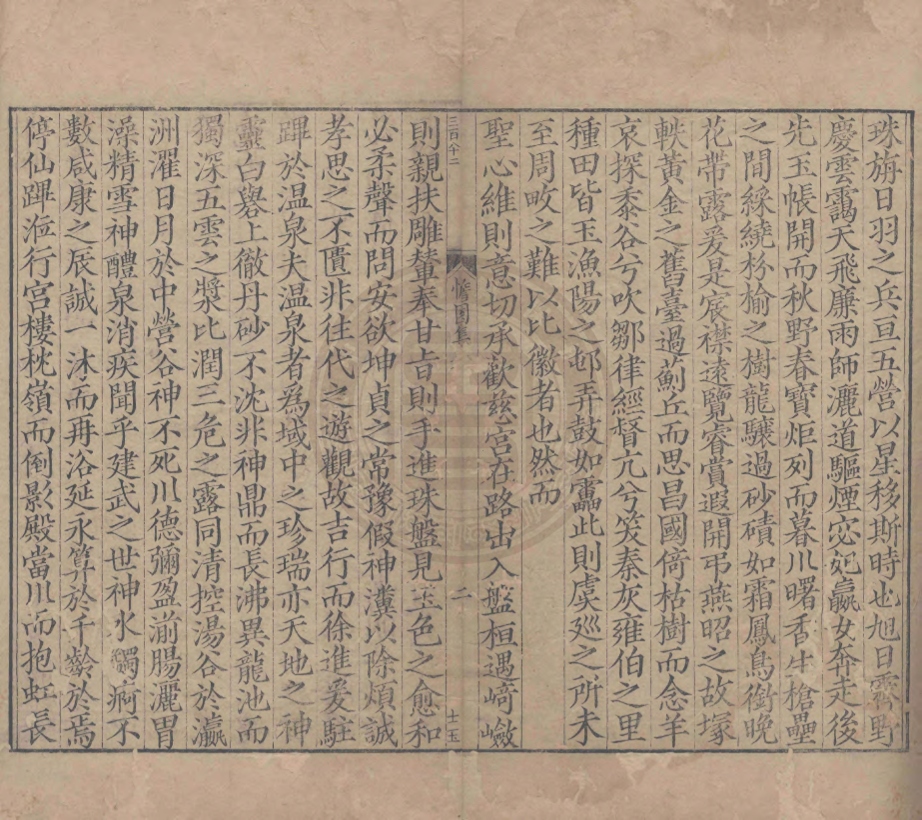 珠旂日羽之兵亘五營以星移斯時也旭日霽野
慶雲靄天飛廉雨師灑道驅煙宓妃嬴女奔走後
先玉帳開而秋野春寶炬列而暮川曙香生槍壘
之間綵繞枌榆之樹龍驤過砂磧如霜鳳鳥銜晚
花帶露爰是宸襟遠覽睿賞遐開弔燕昭之故塚
軼黃金之舊臺過薊丘而思昌國倚枯樹而念羊
哀探黍谷兮吹鄒律經督亢兮笑秦灰雍伯之里
種田皆玉漁陽之邨弄鼓如靁此則虞廵之所未
至周畋之難以比徽者也然而
聖心維則意切承歡慈宮在路出入盤桓遇﨑嶮
三百八十二
憺園集
二
十二玉
則親扶雕輦奉甘旨則手進珠盤見玉色之愈和
必柔聲而問安欲坤貞之常豫假神瀵以除煩誠
孝思之不匱非往代之遊觀故吉行而徐進爰駐
蹕於温泉夫温泉者爲域中之珍瑞亦天地之神
靈白礜上徹丹砂不沈非神鼎而長沸異龍池而
獨深五雲之漿比潤三危之露同清控湯谷於瀛
洲濯日月於中營谷神不死川德彌盈湔腸灑胃
澡精雪神醴泉消疾聞乎建武之世神水蠲痾不
數咸康之辰誠一沐而再浴延永算於千齡於焉
停仙蹕涖行宮樓枕嶺而倒影殿當川而抱虹長